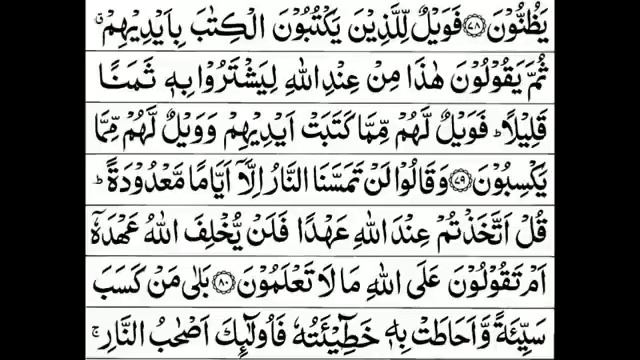 يَظُنُّوۡنَ ﴿۷۸﴾ فَوَيۡلٌ لِّلَّذِيۡنَ يَكۡتُبُوۡنَ الۡكِتٰبَ بِاَيۡدِيۡهِمۡ ق
ثُمَّ يَقُوۡلُوۡنَ هٰذَا مِنۡ عِنۡدِ اللّٰهِ لِيَشۡتَرُوۡا بِهٖ ثَمَنًا
قَلِيۡلًا ؕ فَوَيۡلٌ لَّهُمۡ مِّمَّا كَتَبَتۡ اَيۡدِيۡهِمۡ وَوَيۡلٌ لَّهُمۡ مِّمَّا
يَكۡسِبُوۡنَ ﴿۷۹﴾ وَقَالُوۡا لَنۡ تَمَسَّنَا النَّارُ اِلَّاۤ اَيَّامًا مَّعۡدُوۡدَةً ؕ
قُلۡ اَتَّخَذۡتُمۡ عِنۡدَ اللّٰهِ عَهۡدًا فَلَنۡ يُّخۡلِفَ اللّٰهُ عَهۡدَهٗۤ
اَمۡ تَقُوۡلُوۡنَ عَلَى اللّٰهِ مَا لَا تَعۡلَمُوۡنَ ﴿۸۰﴾ بَلٰى مَنۡ كَسَبَ
سَيِّئَةً وَّاَحَاطَتۡ بِهٖ خَطِيۡٓئَتُهٗ فَاُولٰٓئِكَ اَصۡحٰبُ النَّارِ ۚ